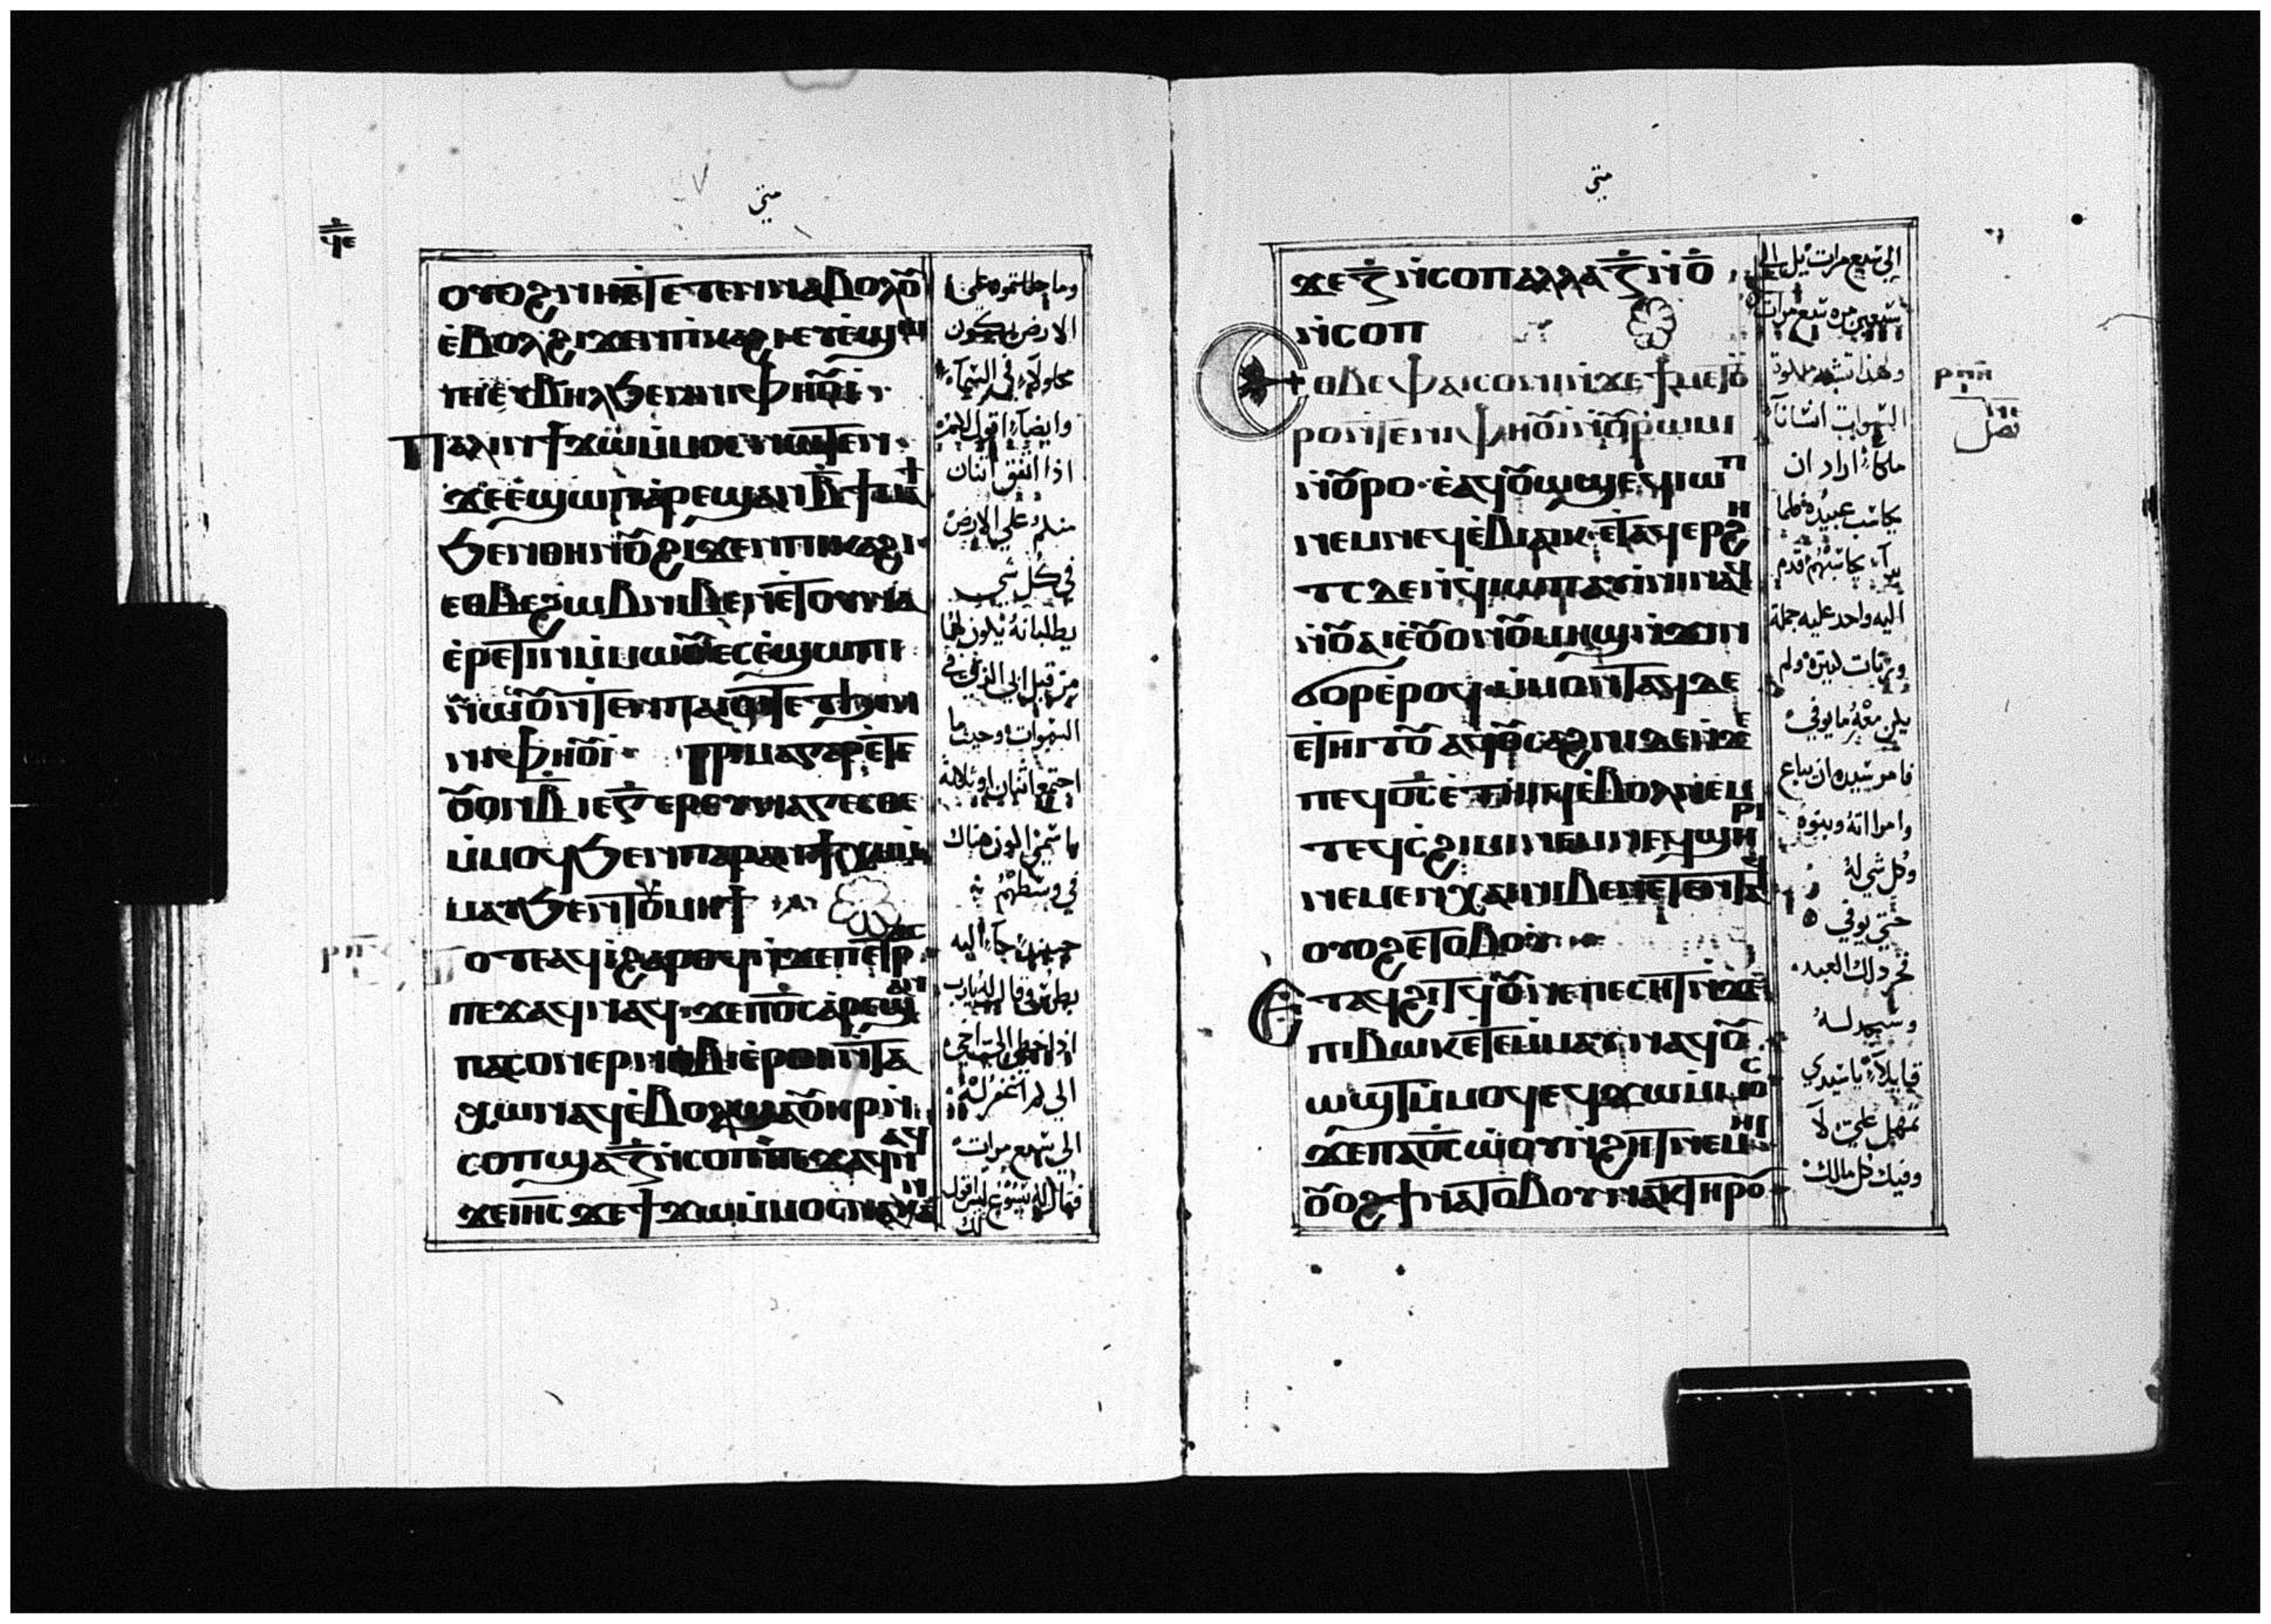 متي
ϥⲉ
ⲟⲩⲟϩ ⲛⲏⲉⲧⲉⲧⲉⲛⲛⲁⲃⲟⲗⲟⲩ
ⲉⲃⲟⲗϩⲓϫⲉⲛⲡⲓⲕⲁϩⲓⲉⲩⲉϣⲱ
ⲡⲓⲉⲩⲃⲏⲗϧⲉⲛⲛⲓⲫⲏⲟⲩⲓ
ⲡⲁⲗⲓⲛϯϫⲱⲙⲙⲟⲥⲛⲱⲧⲉⲛ
ϫⲉⲉϣⲱⲡⲁⲣⲉϣⲁⲛⲃ̅ϯⲙⲁϯ
ϧⲉⲛⲑⲏⲛⲟⲩϩⲓϫⲉⲛⲡⲓⲕⲁϩⲓ
ⲉⲑⲃⲉϩⲱⲃⲛⲓⲃⲉⲛⲉⲧⲟⲩⲛⲁ
ⲉⲣⲉⲧⲓⲛⲙⲙⲱⲟⲩⲉⲥⲉϣⲱⲡⲓ
ⲛⲱⲟⲩⲛⲧⲉⲛⲡⲁⲓⲱⲧⲉⲧϧⲉⲛ
ⲛⲓⲫⲏⲟⲩⲓ ⲡⲓⲙⲁⲅⲁⲣⲉⲧⲉ
ⲟⲩⲟⲛⲃ̅ⲓⲉⲅ̅ⲉⲣⲑⲩⲛⲁⲅⲉⲥⲑⲉ
ⲙⲙⲟϥϧⲉⲛⲡⲁⲣⲁⲛϯⲭⲏⲙ
ⲙⲁⲩϧⲉⲛⲧⲟⲩⲙⲏϯ
ⲟⲧⲉⲁϥⲓϩⲁⲣⲟϥⲛϫⲉⲡⲉⲧⲣⲟⲥ
ⲡⲉϫⲁϥⲛⲁϥϫⲉⲡⲟ̅ⲥ̅ⲁⲣⲉϣⲁⲛ
ⲡⲁⲥⲟⲛⲉⲣⲛⲟⲃⲓⲉⲣⲟⲓⲛⲧⲁ
ⲭⲱⲛⲁϥⲉⲃⲟⲗϣⲁⲟⲩⲏⲣⲛ
ⲥⲟⲡϣⲁⲍ̅ⲛⲥⲟⲡⲡⲉϫⲁϥⲛⲁϥ
ϫⲉⲓⲏ̅ⲥ̅ϫⲉϯϫⲱⲙⲙⲟⲥⲛⲁⲕⲁⲛ
وما حللتموه علي
الارض يكون
محلولا في السماء
وايضا اقول لكم
اذا اتفق اثنان
منكم علي الارض
في كل شي
يطلبانه يكون لهما
من قبل ابي الذي في
السموات وحيث ما
اجتمع اثنان او ثلاثة
باسمي اكون هناك
في وسطهم
حينيذ جا اليه
بطرس وقال له يارب
اذا اخطا الي اخي
الي كم اغفر له
الي سبع مرات
فقال له يسوع ليس اقول
لك
متي
ϫⲉⲍ̅ⲛⲥⲟⲡⲁⲗⲗⲁⲍ̅ⲛⲟ̅
ⲛⲥⲟⲡ
ⲉⲑⲃⲉⲫⲁⲓⲥⲟⲛⲓⲛϫⲉϯⲙⲉⲧⲟⲩ
ⲣⲟⲛⲧⲉⲛⲓⲫⲏⲟⲩⲓⲛⲟⲩⲣⲱⲙⲓ
ⲛⲟⲩⲣⲟⲉⲁϥⲟⲩⲱϣⲉϥⲓⲱⲡ
ⲛⲉⲙⲛⲉϥⲉⲃⲓⲁⲓⲕⲉⲧⲁϥⲉⲣϩⲏ
ⲧⲥⲇⲉⲛϥⲓⲱⲡⲁⲩⲓⲛⲓⲛⲁϥ
ⲛⲟⲩⲁⲓⲉⲟⲩⲟⲛⲟⲩⲙⲏϣⲛϫⲓⲛ
ϭⲱⲣⲉⲣⲟϥⲙⲙⲟⲛⲧⲁϥⲇⲉ
ⲉⲧⲏⲓⲧⲟⲩⲁϥⲟⲩⲁϩⲥⲁϩⲛⲓⲇⲉⲛϫⲉ
ⲡⲉϥⲟ̅ⲥ̅ⲉⲧⲏⲓϥⲉⲃⲟⲗⲛⲉⲙ
ⲧⲉϥⲥϩⲓⲙⲓⲛⲉⲙⲛⲉϥϣⲏⲣⲓ
ⲛⲉⲙⲉⲛⲭⲁⲓⲛⲓⲃⲉⲛⲉⲧⲉⲛⲧⲁϥ
ⲟⲩⲟϩⲉⲧⲟⲃⲟⲩ
ⲉⲧⲁϥϩⲓⲧϥⲟⲩⲛⲉⲡⲉⲥⲏⲧⲛϫⲉ
ⲡⲓⲃⲱⲕⲉⲧⲉⲙⲙⲁⲩⲛⲁϥⲟⲩ
ⲱϣⲧⲙⲙⲟϥⲉϥϫⲱⲙⲙⲟⲥ
ϫⲉⲡⲁⲟ̅ⲥ̅ⲱⲟⲩⲛϩⲏⲧⲛⲉⲙⲏⲓ
ⲟⲩⲟϩϯⲛⲁⲧⲟⲃⲟⲩⲛⲁⲕⲧⲏⲣⲟⲩ
الي سبع مرات بل الي
سبعين مره سبع مرات
ولهذا تشبه ملكوت
السموات انسانا
ملكا اراد ان
يحاسب عبيده فلما
بدا يحاسبهم قدم
اليه واحد عليه جملة
وزنات كثيرة ولم
يكن معه ما يوفي
فامر سيده ان يباع
وامراته وبنوه
وكل شي له
حتي يوفي
فخر ذلك العبد
وسجد له
قايلا يا سيدي
تمهل علي
وفيك كل مالك
ⲣⲡⲏ
فصل